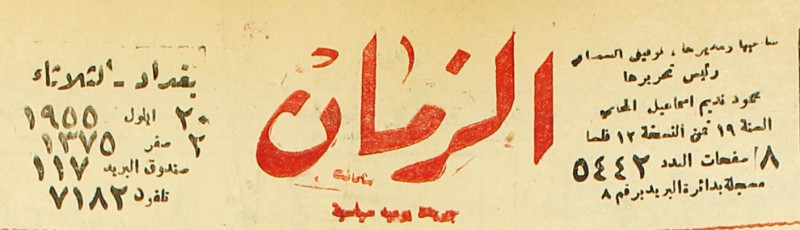 صاحبها ومديرها : توفيق السمعاني
رئيس تحريرها
محمود نديم اسماعيل المحامي
السنة ١٩ ثمن النسخة ١٢ فلسا
٨ صفحات العدد ٥٤٤٢
مسجلة بدائرة البريد برقم ٨
الزمان
جريدة يومية سياسية
بغداد - الثلاثاء
٢٠ ايلول ١٩٥٥
٢ صفر ١٣٧٥
صندوق البريد ١١٧
تلفون ٧١٨٢